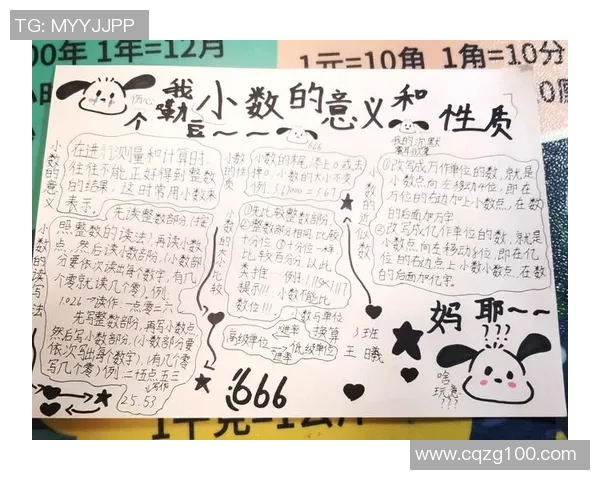 TG: MYYJJPP
00年 1年=12月
1元=10角 1角=10分
我嘞个豆~~
小数的意义和性质
伤心
666
小数的意义
在进行测量和计算时,
往往不能正好得到整数
的结果,这时常用小数来
表示。
小数的读写法
先读整数部分,(按
照整数的读法)再读小数
点,然后读小数部分,(小数部
分要依次读出每个数字,有几
个零就读几个零)。例:
读作一点零二六
先写整数部分,再写小数点
然后写小数部分,(小数部分要
依次写出每个数字),(有几个零
写几个零)例 二十五点五三
写作
25.53
小数的性质
小数的末尾添上0或去
掉0,小数的大小不变
小数的大小比较
①先比较整数部分,
②整数部分相同,比较
十分位 ③十分位一样
比较百分位,以此
类推
提示!!!小数不能比
数位!!!
小数与单位
换算
高级单位
进率
低级单位
进率
小数的近似数
我的沉默
震耳欲聋
①改写成万作单位的数,就是
小数点向左移动4位,即在
万位的右边加上小数点,在数
的后面加万字
②改写成亿作单位的数,就是
小数点向左移动8位,即在亿
位的右边点上小数点,在数
的后面加亿字。
班
王 曦
妈耶~~
???
啥
玩意
???
666
www.cqzg100.com